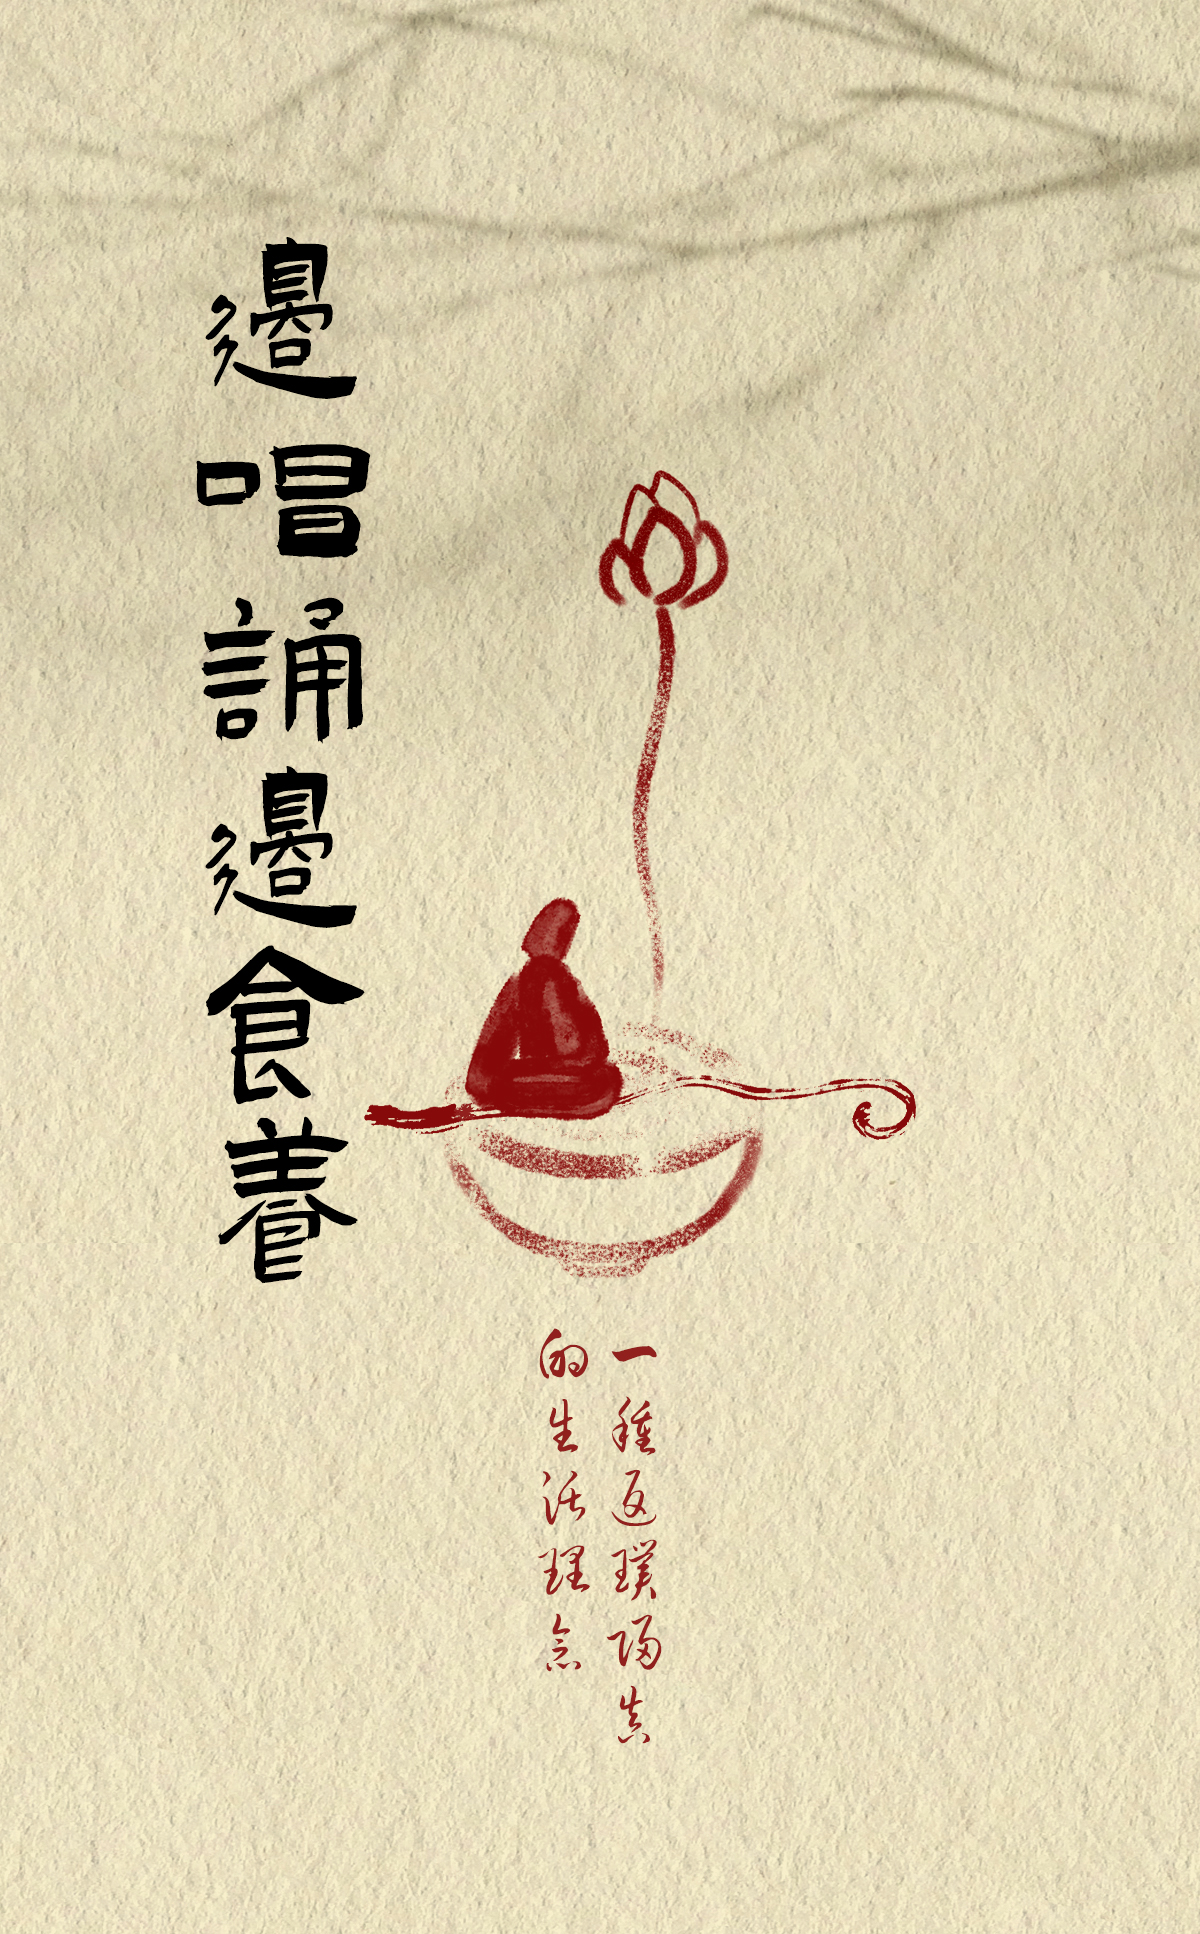 邊唱誦邊食養
一種返璞歸真
的生活理念